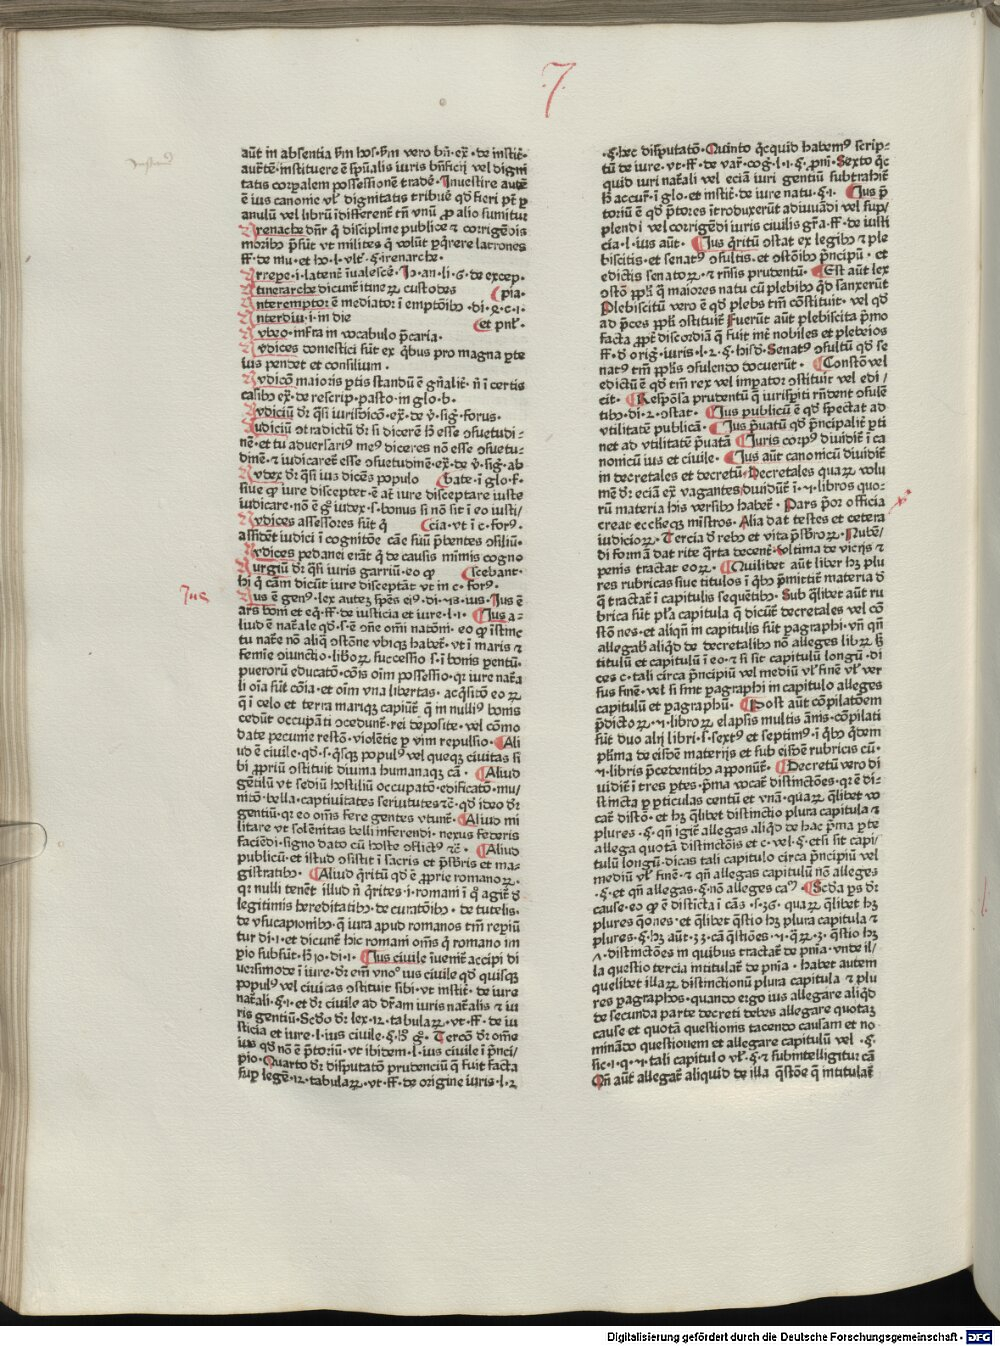 7
aūt in absentia
tatis corꝑalem possessionē tradē. Inuestire autē
ē ius canonie vl' dignitatis
anulū vel librū
Irenache dn̄r q̄ discipline publice ⁊ corrigēdis
moribꝰ p̄sūt vt milites q̄ volūt ꝑq̄rere latrones
ff. de mu. et ho. l. vlt'. §. irenarche.
Itinerarche dicunt̄ itineꝝ custodes
Interemptor ē mediator ī emptōibꝰ
Interdiu .i. in die
Iubeo. infra in vocabulo p̄caria.
Iudices domestici sūt ex q̄bus pro magna ꝑte
ius pendet et consilium.
Iudicō maioris ꝑtis standū ē gn̄alit̄
casibꝰ ex̄. de rescrip. pasto. in glo. b.
Iudiciū dr̄ q̄si iurisdicō
Iudiciū ↄtradictū dr̄ si dicerē
nē. et tu aduersariꝰ meꝰ diceres nō esse ↄsuetu-
dinē. ⁊ iudicaret̄ esse ↄsuetudinē
Iudex dr̄ q̄si ius dicēs populo
siue ꝙ iure disceptet. ē at̄ iure disceptare iuste
iudicare. nō ē gͦ iudex .s. bonus si nō sit ī eo iusti/
Iudices assessores sūt q̄
assidēt iudici ī cognitōe
Iudices pedanei erāt q̄ de causis minimis cogno
Iurgiū dr̄ q̄si iuris garriū. eo ꝙ
hi q̄ cām dicūt iure disceptāt vt in c. forꝰ.
Ius
Ius ē genꝰ. lex autez sp̄es eiꝰ
ars boni et eq̄. ff. de iusticia et iure. l. 1. Ius a-
liud ē nat̄ale
tu nat̄e nō aliq̄ ↄstōne vbiqꝫ habet̄. vt ī maris ⁊
femie ↄiunctio. liboꝝ successio
puerorū educatō. cōis oīm possessio. qꝛ iure nat̄a
li oīa sūt cōia. et oīm vna libertas. acq̄sitō eoꝝ
q̄ ī celo et terra mariqꝫ capiūt̄. q̄ in nulliꝰ bonis
cedūt occupāti ↄcedunt̄. rei deposite. vel cōmo
date pecunie restō. violētie ꝑ vim repulsio. Ali
ud ē ciuile
bi ꝓpriū ↄstituit diuina humanaqꝫ cā. Aliud
gētiliū vt sediū hostiliū occupatō. edificatō. mu/
nitō. bella. captiuitates seruitutes
gentiū. qꝛ eo om̄s fere gentes vtunt̄. Aliud mi
litare vt solēnitas belli inferendi. nexus federis
faciēdi. signo dato cū hoste ↄflictꝰ ⁊c̄. Aliud
publicū. et istud ↄsistit ī sacris et p̄sbris et ma-
gistratibꝰ. Aliud q̄ritū qd̄ ē ꝓprie romanoꝝ.
qꝛ nulli tenet̄ illud
legitimis hereditatibꝰ. de curatōibꝰ. de tutelis.
de vsucapionibꝰ. q̄ iura apud romanos tm̄ reꝑiū
tur di. 1. et dicunt̄ hic romani om̄s q̄ romano im
ꝑio subsūt. Ius ciuile īuenit̄ accipi di
uersimode ī iure. dr̄ em̄ vno ius ciuile qd̄ quisqꝫ
populꝰ vel ciuitas ↄstituit sibi. vt instit̄. de iure
nat̄ali. §. 1. et dr̄ ciuile ad dr̄am iuris nat̄alis ⁊ iu
ris gentiū. Scdo dr̄ lex .12. tabulaꝝ. vt. ff. de iu
sticia et iure. l. ius ciuile. Terco dr̄ om̄e
ius qd̄ nō ē p̄toriū. vt ibidem. l. ius ciuile ī p̄nci/
pio. Quarto dr̄ disputatō prudenciū q̄ fuit facta
suꝑ legē .12. tabulaꝝ. vt. ff. de origine iuris. l. 2
§. hec disputatō. Quinto q̄cquid habemꝰ scrip-
tū de iure. vt. ff. de var̄. coḡ. Sexto q̄c
quid iuri nat̄ali vel eciā iuri gentiū subtrahit̄
Ius p̄
toriū ē qd̄ p̄tores ītroduxerūt adiuuādi vel sup/
plendi vel corrigēdi iuris ciuilis gr̄a. ff. de iusti
cia. l. ius aūt. Ius q̄ritū ↄstat ex legibꝰ ⁊ ple
biscitis. et senatꝰ ↄsultis. et ↄstōibꝰ p̄ncipū. et
edictis senatoꝝ. ⁊ rn̄sis prudentū. Est aūt lex
ↄstō ppl'i q̄ maiores natu cū plebibꝰ qd̄ sanxerūt
Plebiscitū vero ē qd̄ plebs tm̄ cōstituit. vel qd̄
ad p̄ces ppl'i ↄstituit. Fuerūt aūt plebiscita p̄mo
facta ꝓpt̄ discordiā q̄ fuit int̄ nobiles et plebeios
ff. d' oriḡ. iuris. l. 2. Senatꝰ ↄsultū qd̄ se
natꝰ tm̄ ppl'is ↄsulendo docuerūt. Constō vel
edictū ē qd̄ tm̄ rex vel impator ↄstituit vel edi/
cit. Respōsa prudentū q̄ iurisꝑiti rn̄dent ↄsule
tibꝰ. di. 2. ↄstat. Ius publicū ē qd̄ spectat ad
vtilitatē publicā. Ius p̄uatū qd̄ p̄ncipalit̄ ꝑti
net ad vtilitatē p̄uatā Iuris corpꝰ diuidit̄ ī ca
nonicū ius et ciuile. Ius aūt canonicū diuidit̄
in decretales et decretū. Decretales quaꝝ volu
mē dr̄ eciā ex̄ vagantes diuidūt̄ ī .5. libros quo-
rū materia his versibꝰ habet̄. Pars p̄or officia
creat ecclieqꝫ mīstros. Alia dat testes et cetera
iudicioꝝ. Tercia d' rebꝰ et vita p̄sbr̄oꝝ. Nubē/
di formā dat rite q̄rta decent̄. vltima de vicijs ⁊
penis tractat eoꝝ. Quilibet aūt liber hꝫ plu
res rubricas siue titulos ī q̄bꝰ p̄mittit̄ materia d'
q̄ tractat̄ ī capitulis sequētibꝰ. Sub q̄libet aūt ru
brica sūt pl'a capitula q̄ dicūt̄ decretales vel cō
stōnes. et aliqn̄ in capitulis sūt ꝑagraphi. vn̄ qn̄
allegabꝰ aliqd̄ de decretalibꝰ nō alleges libꝝ
titulū et capitulū ī eo. ⁊ si sit capitulū longū. di
ces c. tali circa p̄ncipiū vel mediū vl' finē vl' ver
sus finē. vel si sint ꝑagraphi in capitulo alleges
capitulū et ꝑagraphū. Post aūt cōpilatōem
p̄dictoꝝ .5. libroꝝ elapsis multis ānis. cōpilati
sūt duo alij libri .s. sextꝰ et septimꝰ. ī q̄bꝰ q̄dem
pl'ima de eisdē materijs et sub eisdē rubricis cū.
5. libris p̄cedentibꝰ apponūt̄. Decretū vero di
uidit̄ ī tres ꝑtes. p̄ma vocat̄ distinctōes. qꝛ ē di-
stincta ꝑ ꝑticulas centū et vnā. quaꝝ q̄libet vo
cat̄ distō. et hꝫ q̄libet distinctio plura capitula ⁊
plures. §. qn̄ igit̄ allegas aliqd̄ de hac p̄ma ꝑte
allega quotā distinctōis et c. vel. §. etsi sit capi/
tulū longū. dicas tali capitulo circa p̄ncipiū vel
mediū vl' finē. ⁊ qn̄ allegas capitulū nō alleges
.§. et qn̄ allegas. §. nō alleges caᵐ. Scda ꝑs dr̄
cause. eo ꝙ ē distincta ī cās .s. 36. quaꝝ q̄libet hꝫ
plures q̄ones. et q̄libet q̄stio hꝫ plura capitula ⁊
plures. §. hꝫ aūt. 33. cā q̄stiōes .5. q̄stio hꝫ
.7. distinctōes in quibus tractat̄ de pn̄ia. vnde il/
la questio tercia intitulat̄ de pn̄ia. habet autem
quelibet illaꝝ distinctionū plura capitula ⁊ plu
res ꝑagraphos. quando ergo ius allegare aliqd̄
de secunda parte decreti debes allegare quotaꝫ
cause et quotā questionis tacendo causam et no-
minādo questionem et allegare capitulū vel .§.
sic .1. q. 5. tali capitulo vl' .§. ⁊ subintelligitur cā
Qn̄ aūt allegat̄ aliquid de illa q̄stōe q̄ intitulat̄
Digitalisierung gefördert durch die Deutsche Forschungsgemeinschaft - DFG